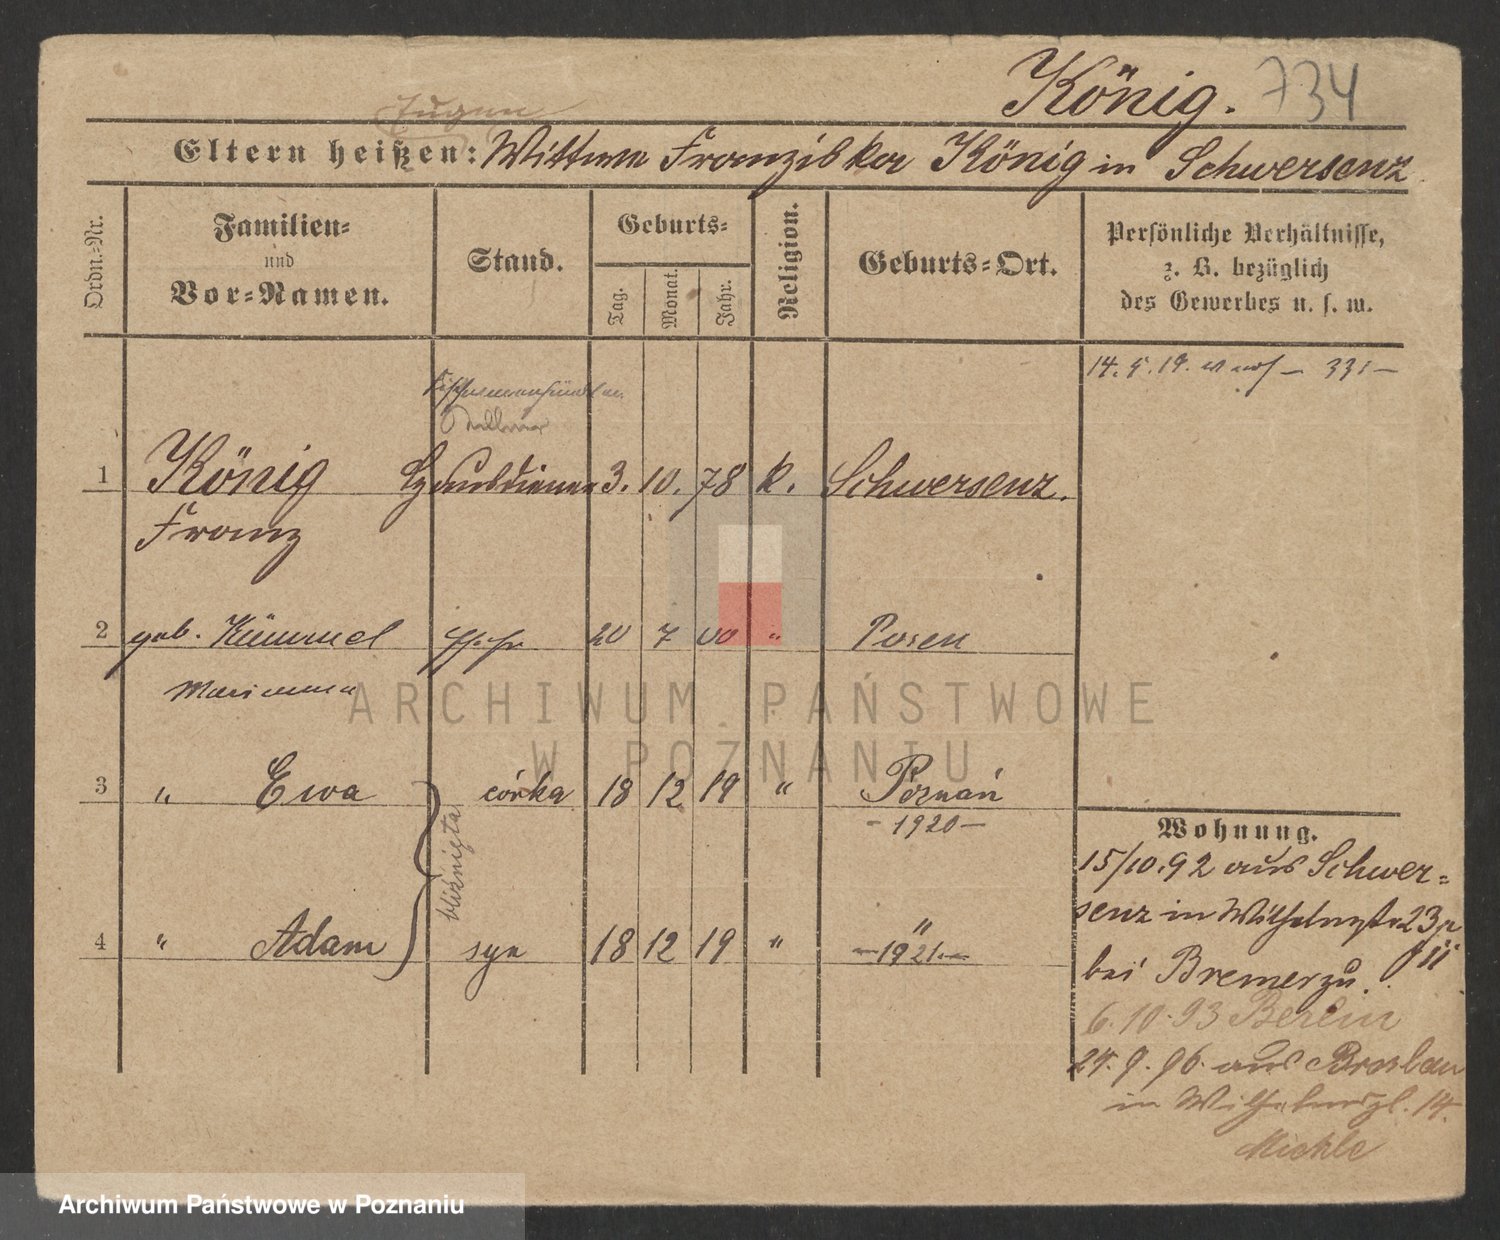 König. 734
Eugen
Eltern heißen: Wittwe Franziska König in Schwersenz
Ordn.-Nr.
Familien-
und
Vor-Namen.
Stand.
Geburts-
Tag.
Monat.
Jahr.
Religion.
Geburts-Ort.
Persönliche Verhältnisse,
z. B. bezüglich
des Gewerbes u. s. w.
14. 5. 19. 331 —
1 König Hausdiener 3. 10. 78 k. Schwersenz.
Franz
2 geb. Kümmel Ehefr 20 7 00 " Posen
Marianna
3 " Ewa córka 18 12 19 " Poznań
- 1920 -
bliźnięta
4 " Adam syn 18 12 19 " "
- 1921. -
Wohnung.
15/10.92 aus Schwer-
senz in Wilhelmstr 23
bei Bremer zu.
6. 10. 93 Berlin
24. 9. 96. aus Breslau
in Wilhelmspl. 14.
Mickle
ARCHIWUM PAŃSTWOWE
W POZNANIU
Archiwum Państwowe w Poznaniu